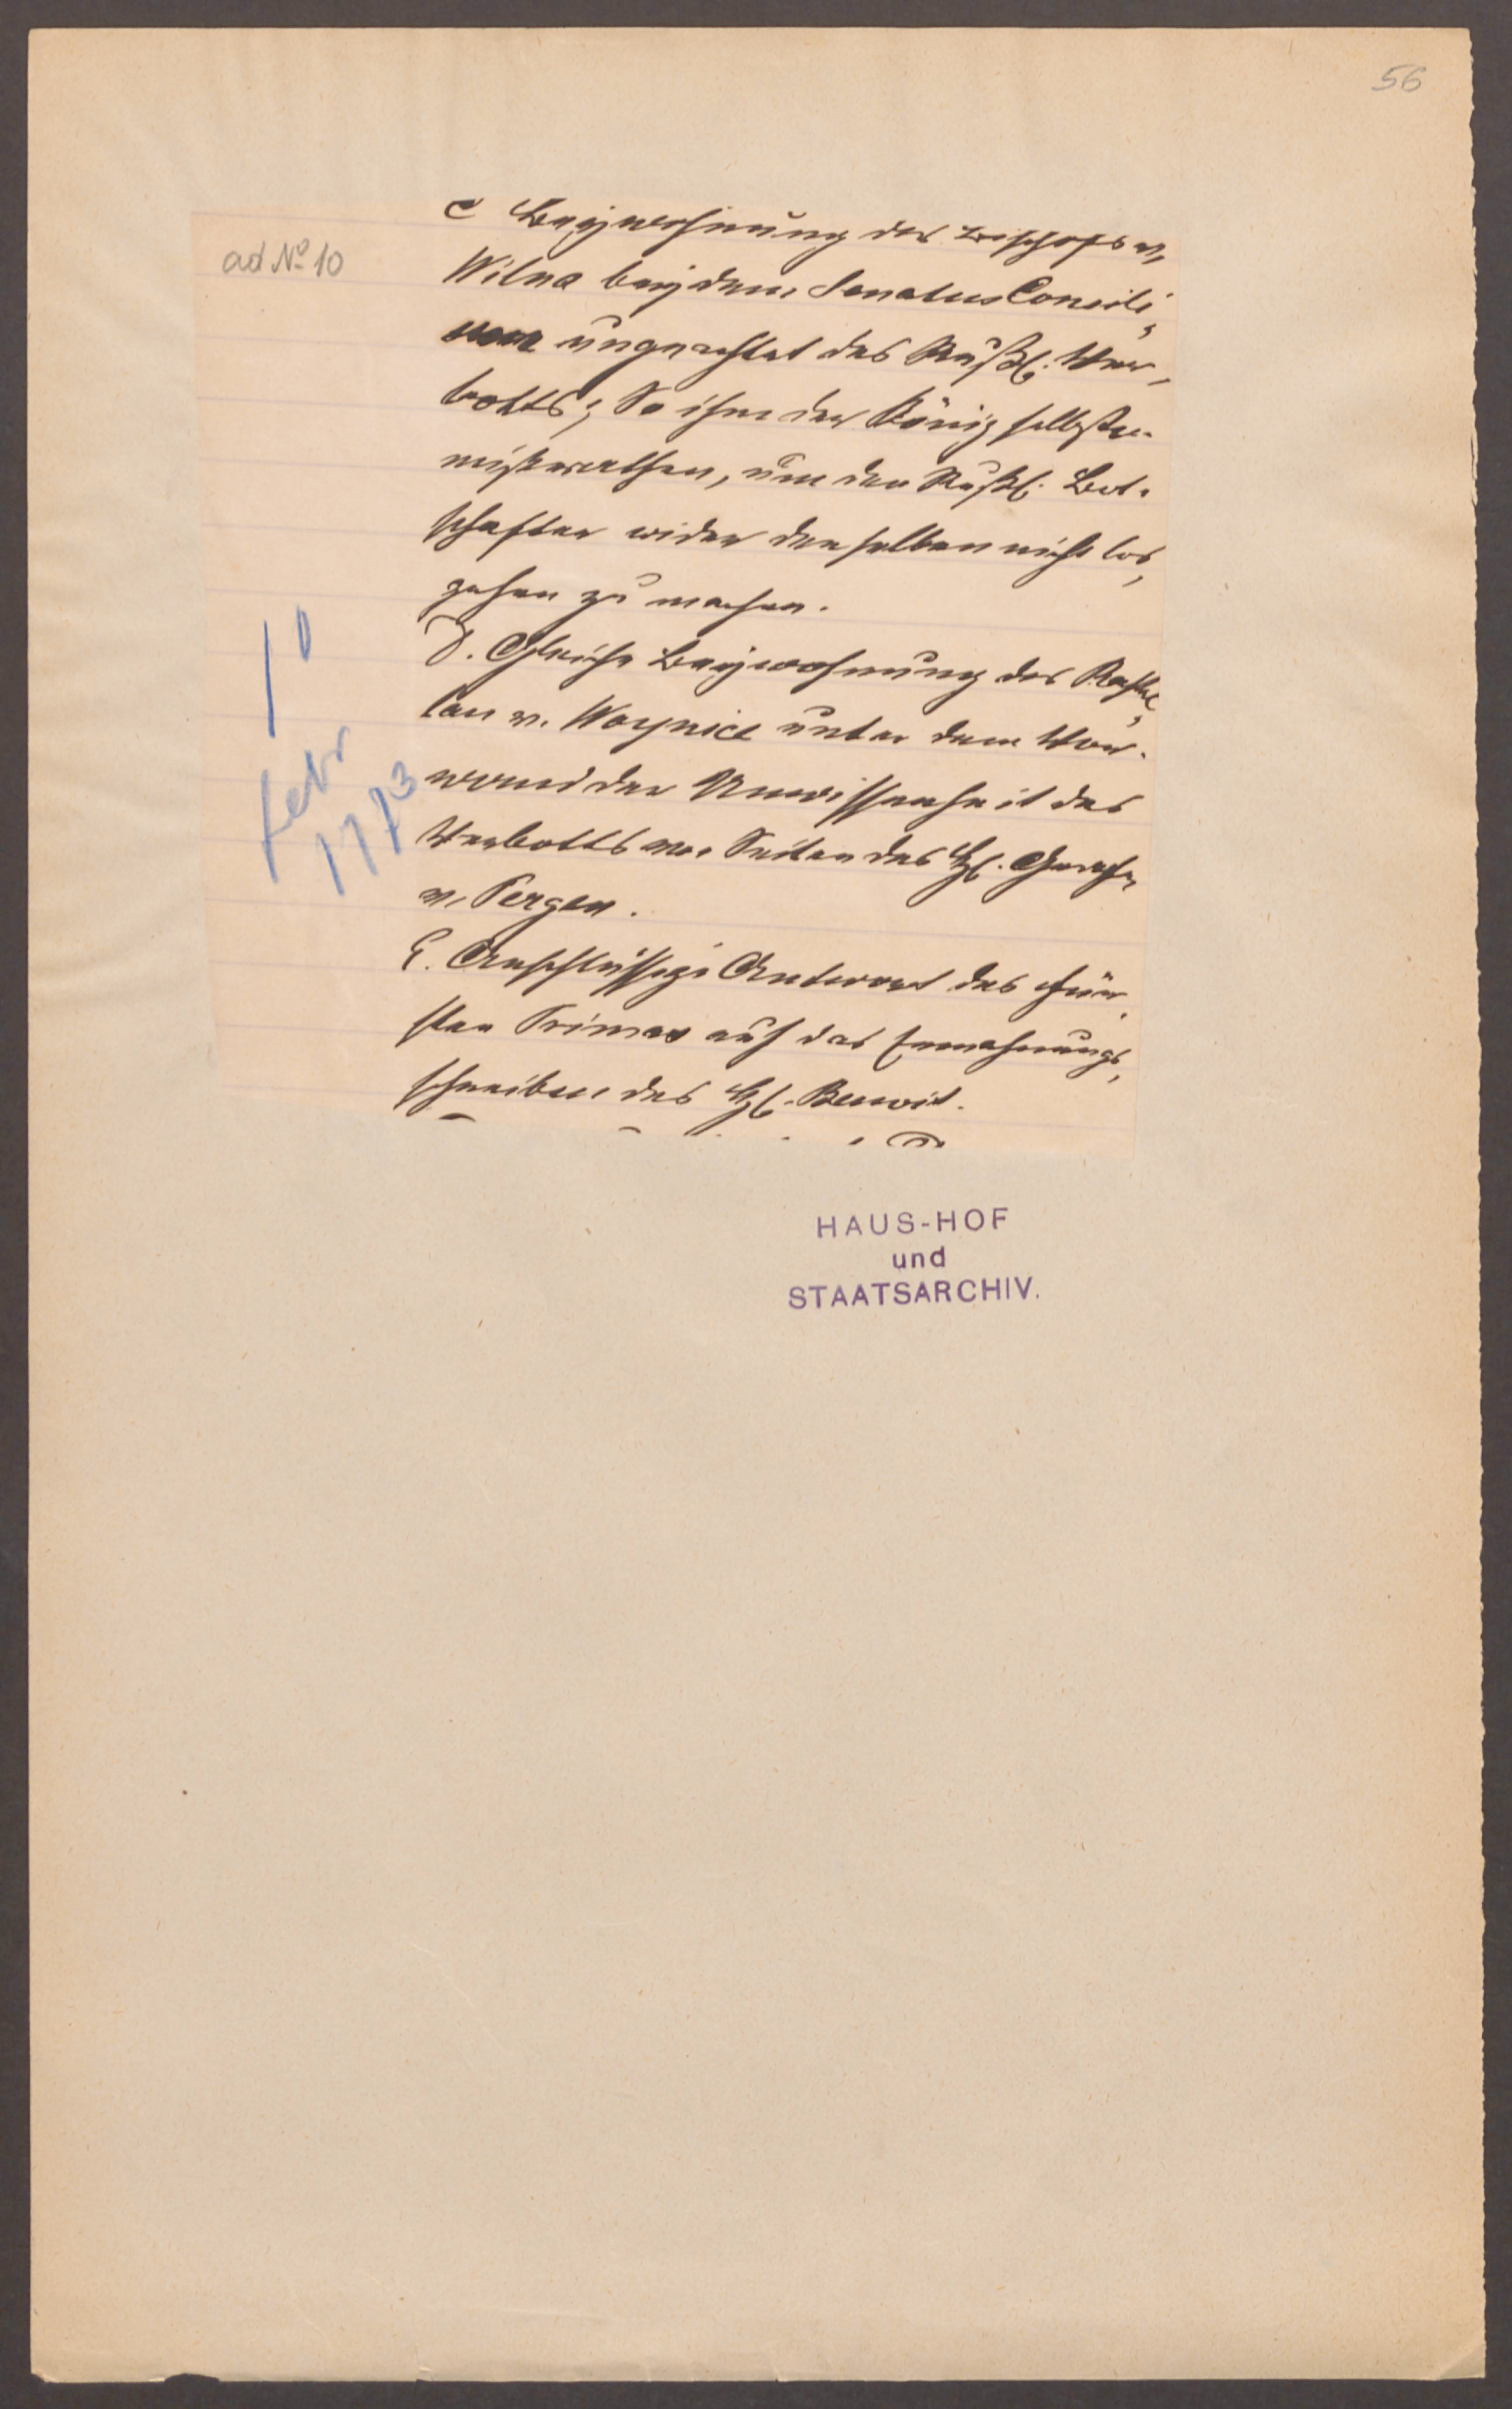 56
ad No 10
C Beywohnung des Bischofs v.
Wilna bey dem Senatus Consili,
ungeachtet des Rußl. Ver,
botts; So ihm der König selbsten
mißrathen, um den Rußl. Bot-
schafter wider denselben nicht los,
gehen zu machen.
D. Gleiche Beywohnung des Kastel,
lan v. Woynicz unter dem Vor-
wand der Unwissenheit des
Verbotts von Seiten des H. Grafen
v. Pergen.
E. Anschlüssige Antwort des Für,
sten Primas auf das Ermahnungs,
schreiben des H. Benoit.
10
Febr
1773
HAUS-HOF
und
STAATSARCHIV.